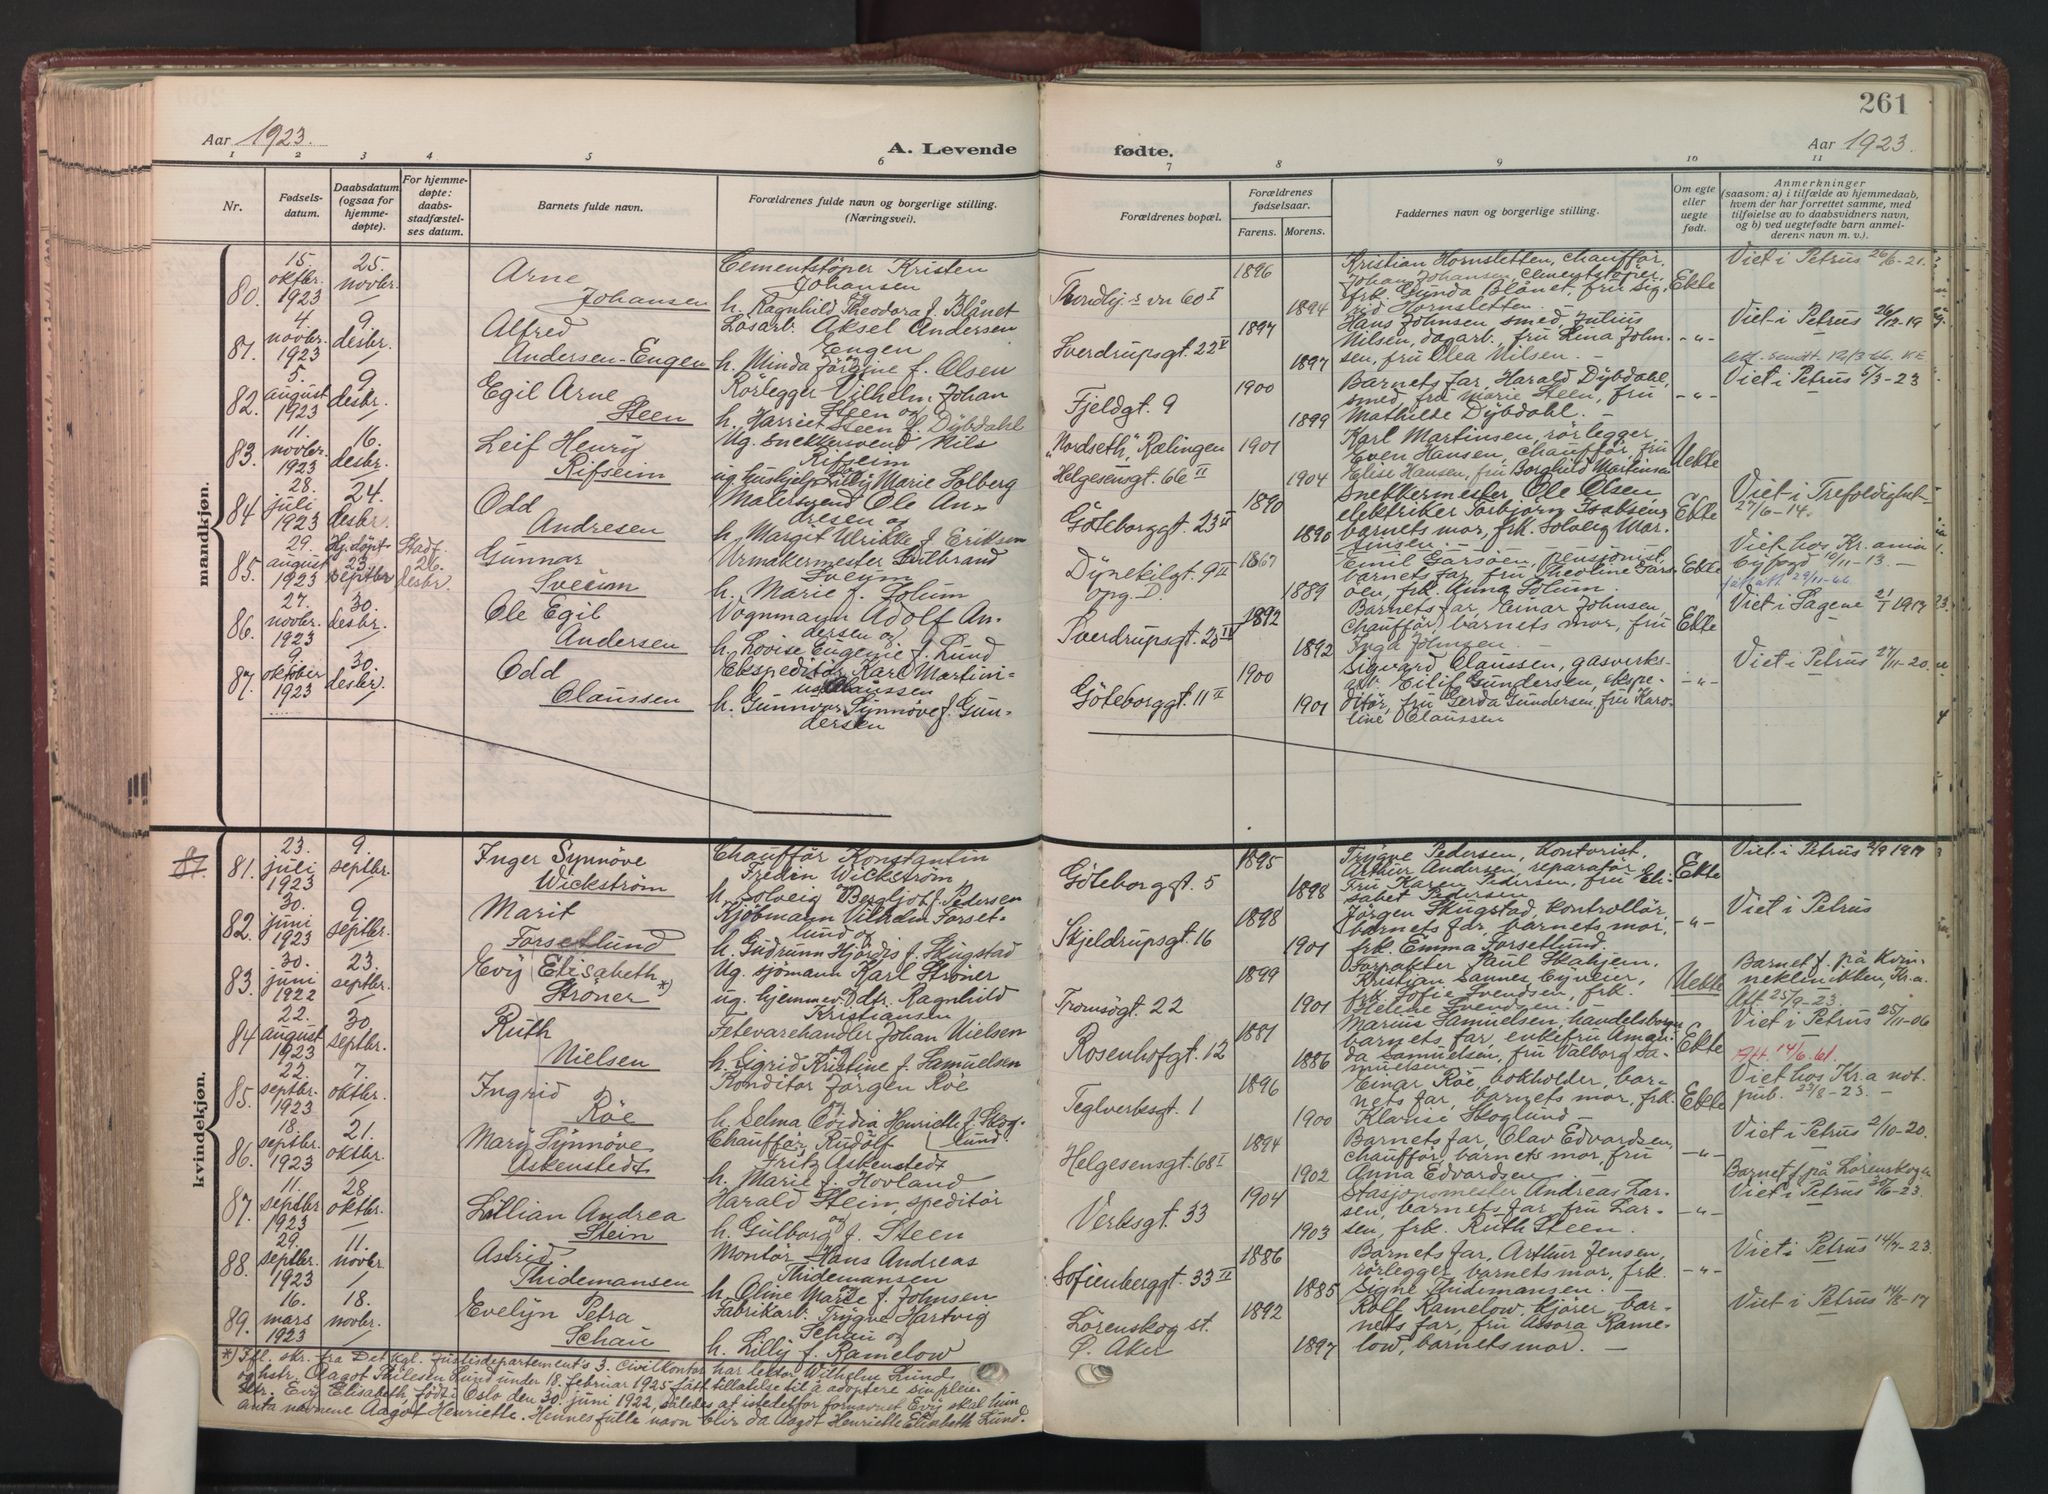 261
Aar 1923.
A. Levende
fødte.
Aar 1923.
1 2 3 4 5 6 7 8 9 10 11
Nr.
Fødsels-
datum.
Daabsdatum
(ogsaa for
hjemme-
døpte).
For hjemme-
døpte:
daabs-
stadfæstel-
ses datum.
Barnets fulde navn.
Forældrenes fulde navn og borgerlige stilling.
(Næringsvei).
Forældrenes bopæl.
Forældrenes
fødselsaar.
Farens. Morens.
Faddernes navn og borgerlige stilling.
Om egte
eller
uegte
født.
Anmerkninger
(saasom: a) i tilfælde av hjemmedaab,
hvem der har forrettet samme, med
tilføielse av to daabsvidners navn,
og b) ved uegtefødte barn anmel-
derens navn m. v.).
mandkjøn.
80.
15.
oktbr.
1923
25.
novbr.
Arne
Johansen
Cementstøper Kristen
Johansen
og
h. Ragnhild Theodora f. Blånet
Thondhj.s vn 60 I
1896
1894
Kristian Hornsletten, chauffør,
Johan Johansen, cementstøper,
frk. Gunda Blånet, fru Sig-
rid Hornsletten. —
Ekte
Viet i Petrus 26/6-21.
81.
4.
novbr.
1923
9
desbr.
Alfred
Andersen-Engen
Løsarb. Aksel Andersen
Engen
og
h. Minda Jørgine f. Olsen
Sverdrupsgt. 22 II
1897
1897
Hans Johnsen, smed, Julius
Nilsen, dagarb., fru Lina John-
sen, fru Olea Nilsen. —
-"-
Viet i Petrus 26/12-19
Att. sendt 12/3-66. KE
82.
5.
august
1923
9
desbr.
Egil Arne
Steen
Rørlegger Vilhelm Johan
Steen og
h. Harriet Steen f. Dybdahl
Fjeldgt. 9
1900
1899
Barnets far, Harald Dybdahl,
smed, fru Marie Steen, fru
Mathilde Dybdahl. —
-"-
Viet i Petrus 5/3-23
83.
11.
novbr.
1923
16.
desbr.
Leif Henry
Rifseim
Ug. snekkersvend Nils
Rifseim
og
ug. hushjelp Lilly Marie Solberg
"Nordseth", Rælingen
Helgesensgt. 66 II
1901
1904
Karl Martinsen, rørlegger,
Even Hansen, chauffør, fru
Elise Hansen, fru Borghild Martinsen
Uekte
84
28.
juli
1923
24.
desbr.
Odd
Andresen
Malersvend Ole An-
dresen og
h. Margit Ulrikke f. Eriksen
Göteborggt. 23 II
1890
1890
Snekkermester Ole Olsen,
elektriker Torbjørn Isaksen,
barnets mor, frk. Solveig Mar-
tinsen. —
Ekte
Viet i Trefoldighet
27/6-14.
85.
29.
august
1923
Hj.døpt
23.
septbr
Stadf.
26.
desbr.
Gunnar
Sveum
Urmakermester Gulbrand
Sveum
h. Marie f. Solum
Dynekilgt. 9 II
opg. D.
1867
1889
Emil Garsöen, pensionist,
barnets far, fru Theoline Gars-
øen, frk. Anna Solum.
Ekte
Viet hos Kr.ania
Byfogd 10/11-13. —
86.
27.
novbr.
1923
30.
desbr.
Ole Egil
Andersen
Vognmann Adolf An-
dersen og
h. Lovise Eugenie f. Lund
Sverdrupsgt. 20 IV
1892
1892
Barnets far, Einar Johnsen,
chauffør, barnets mor, fru
Inga Johnsen.
Ekte
Viet i Sagene 21/1 1917
87.
9.
oktober
1923
30.
desbr.
Odd
Claussen
Ekspeditör Karl Martini-
us Claussen
h. Gunnvor Synnöve f. Gun-
dersen
Göteborggt. 11 II
1900
1901
Sigvard Claussen, gasverks-
arb. Eilif Gundersen, ekspe-
ditør, fru Gerda Gundersen, fru Karo-
line Claussen
-"-
Viet i Petrus 27/11-20.
kvindekjøn.
81.
23.
juli
1923
9.
septbr.
Inger Synnöve
Wickström
Chauffør Konstantin
Fredin Wickström
og
h. Solveig Bergljot f. Pedersen
Göteborggt. 5
1895
1898
Trygve Pedersen, kontorist,
Arthur Andersen, reparatør,
Fru Karen Pedersen, fru Eli-
sabet Pedersen
Ekte
Viet i Petrus 2/9 1917
82.
30.
juni
1923
9
septbr.
Marit
Forsetlund
Kjøbmann Vilhelm Forset-
lund og
h. Gudrunn Hjördis f. Skugstad
Skjeldrupsgt. 16
1898
1901
Jørgen Skugstad, kontrollør,
barnets far, barnets mor,
frk. Emma Forsetlund.
-"-
Viet i Petrus
83.
30.
juni
1922
23.
septbr.
Evy Elisabeth *)
Ströner
Ug. sjömann Karl Ströner
og
ug. hjemmev. dtr. Ragnhild
Kristiansen
Tromsögt. 22
1899
1901
Forpakter Paul Skahjem,
Kristian Sannes Eyneier,
frk. Sofie Svendsen, frk.
Helene Svendsen.
Uekte
Barnet f. på Kvin-
neklinikken, Kr.a.
Att. 25/9-23.
84
22.
august
1923
30
septbr.
Ruth
Nielsen
Fetevarehandler Johan Nielsen
og
h. Sigrid Kristine f. Samuelsen
Rosenhofgt. 12
1881
1886
Marius Samuelsen, handelsborger,
barnets far, enkefru Aman-
da Samuelsen, fru Valborg Sa-
muelsen. —
Ekte
Viet i Petrus 25/11-06
Att. 14/6. 61.
85.
22.
septbr.
1923
7.
oktbr.
Ingrid
Röe
Konditor Jørgen Röe
og
h. Selma Ovidia Henriette f. Skog-
lund.
Teglverksgt. 1
1896
1900
Einar Röe, bokholder, bar-
nets far, barnets mor, frk.
Klarise Skoglund —
Ekte
Viet hos Kr.a not.
pub. 23/8-23. —
86.
18.
septbr.
1923
21.
oktbr.
Mary Synnöve
Askenstedt
Chauffør Rudolf
Fritz Askenstedt
h. Marie f. Hovland
Helgesensgt. 68 I
1894
1902
Barnets far, Olav Edvardsen,
chauffør, barnets mor, fru
Anna Edvardsen
-"-
Viet i Petrus 2/10-20.
87.
11.
septbr
1923
28
oktbr.
Lillian Andrea
Stein
Harald Stein, speditör
og
h. Gulborg f. Steen
Verksgt. 33
1904
1903
Stasjonsmester Andreas Lar-
sen, barnets far, fru Lar-
sen, frk. Ruth Steen.
-"-
Barnet f. på Lørenskogen
Viet i Petrus 30/6-23.
88.
29.
septbr.
1923
11.
novbr
Astrid
Thidemansen
Montør Hans Andreas
Thidemansen
og
h. Oline Marie f. Johnsen
Sofienberggt. 33 II
1886
1885
Barnets far, Arthur Jensen,
rørlegger, barnets mor, frk.
Signe Thidemansen. —
-"-
Viet i Petrus 14/7-23.
89.
16.
mars
1923
18.
novbr.
Evelyn Petra
Schau
Fabrikarb. Trygve Hartvig
Schau og
h. Lilly f. Ramelow
Lörenskog st.
Ø. Aker
1892
1897
Rolf Ramelow, kjører, bar-
nets far, fru Assora Rame-
low, barnets mor. —
Viet i Petrus 14/8-17
*) Ifl. skr. fra Det kgl. Justisdepartement's 3. civilkontor har lektor Wilhelm Lund
og hstr. Aagot Thilesen Lund under 18. februar 1925 fått tillatelse til å adoptere sin pleie-
dtr. Evy Elisabeth, født i Oslo den 30. juni 1922, således at istedetfor fornavnet Evy skal hun
anta navnene Aagot Henriette. Hennes fulle navn blir da Aagot Henriette Elisabeth Lund.